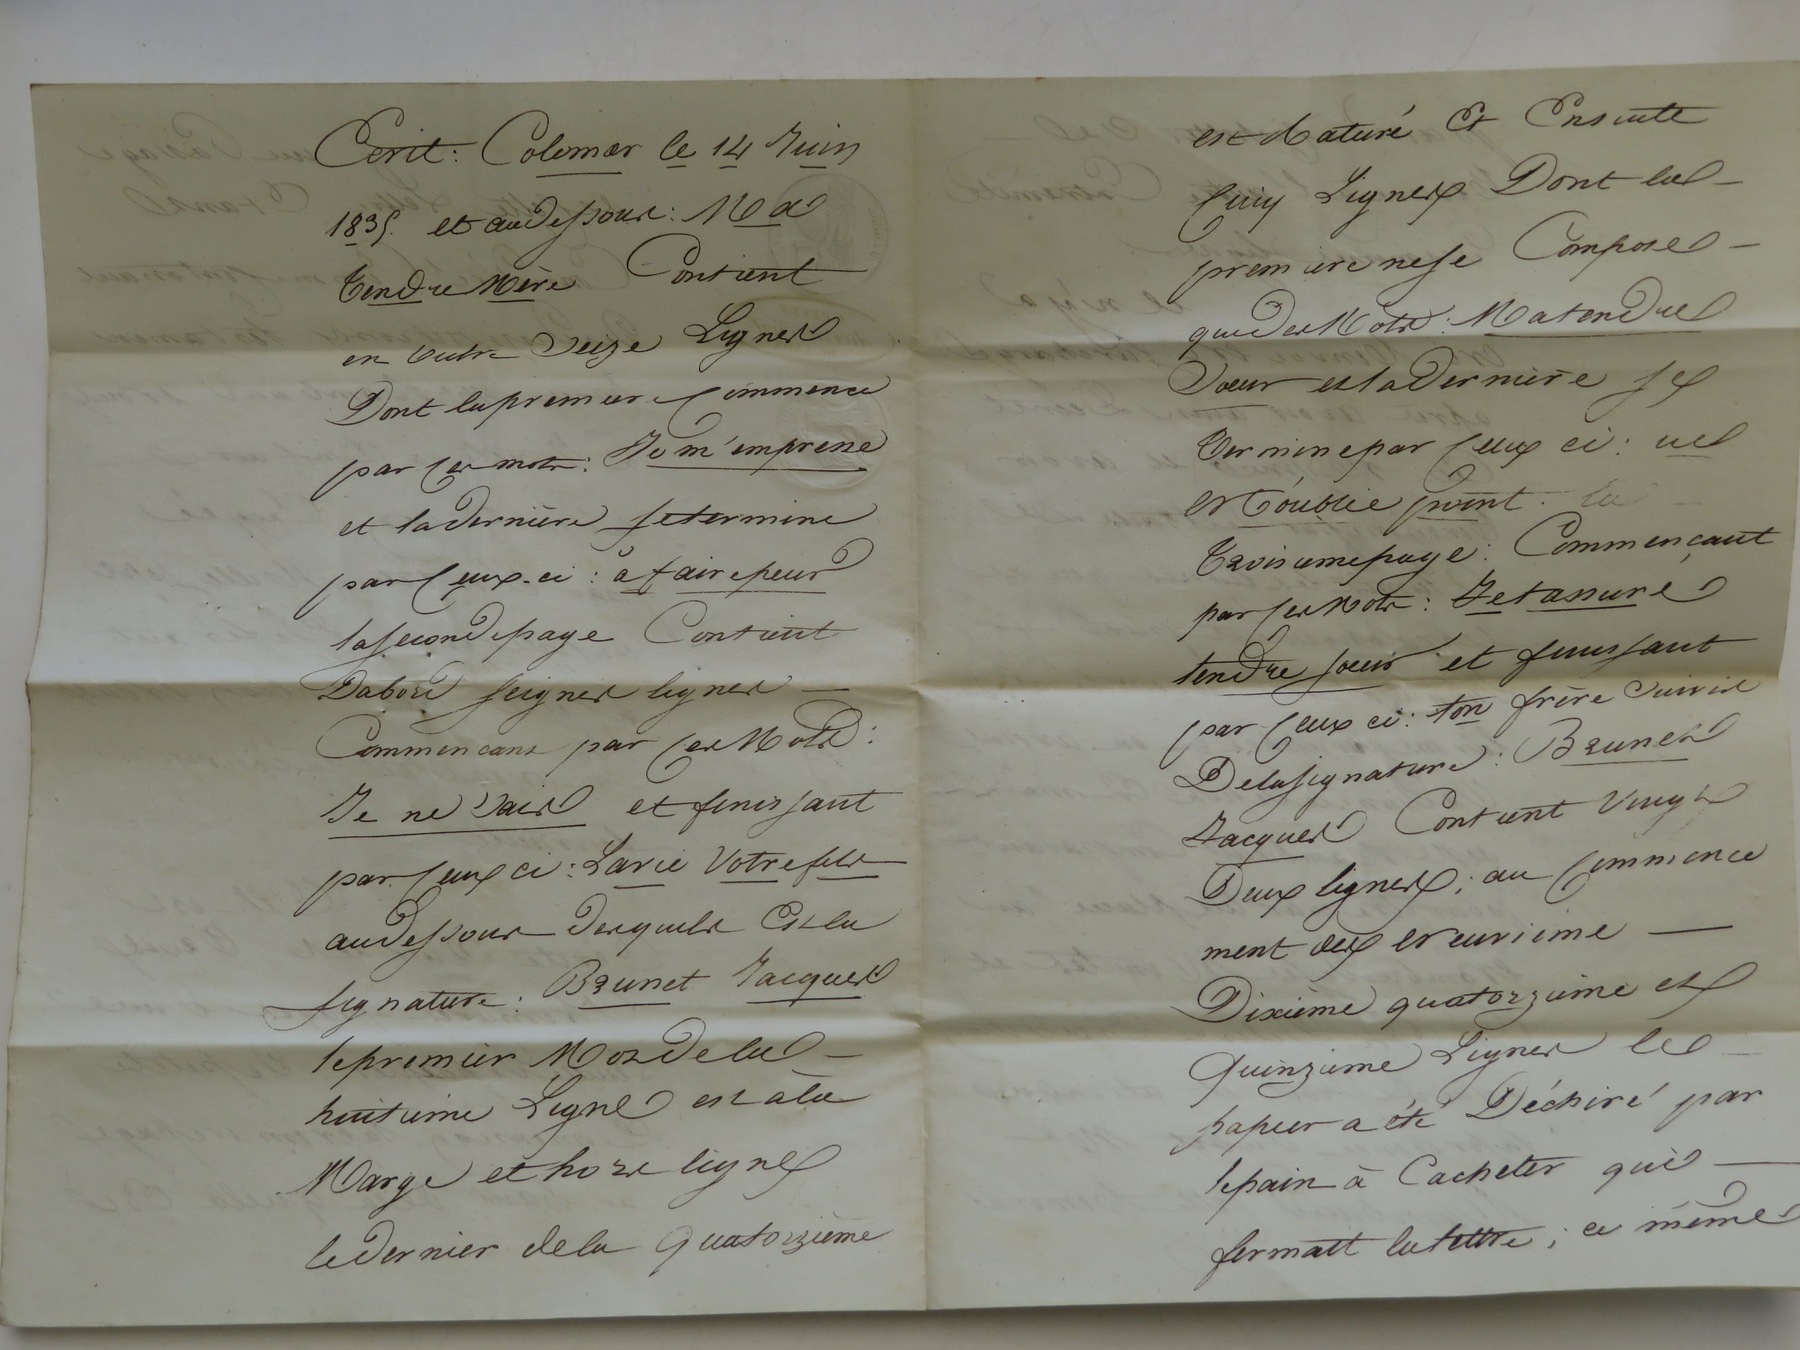 Ecrit: Colomar le 14 Juin
1835. et audessous: Ma
tendre Mère Contient
en outre Seize Lignes
Dont la premier Commence
par Ces mots: Je m'empresse
et la dernière se termine
par Ceux-ci: à faire peur
la seconde page Contient
Dabord lignes
Commencans par Ces Mots:
Je ne Sais et finissant
par Ceux ci: Lavie Votre fils
audessous desquels Est la
signature: Brunet Jacques
le premier Mot de la
huitième Ligne est à la
Marge et hors ligne
le dernier de la Quatorzième
est Raturé Et Ensuite
Cinq Lignes Dont la
premiere ne se Compose
que des Mots: Ma tendre
Soeur et la dernière se
termine par Ceux ci: ne
t'oublie point. la
troisieme page: Commençant
par Ces Mots: Je t'assure
tendre soeur et finissant
par Ceux ci: ton frère Suivis
De la signature: Brunet
Jacques Contient Vingt
Deux lignes; au Commence
ment des neuvieme
Dixième quatorzieme et
Quinzieme Lignes le
papier a été Déchiré par
le pain à Cacheter qui
fermait la lettre; ce même